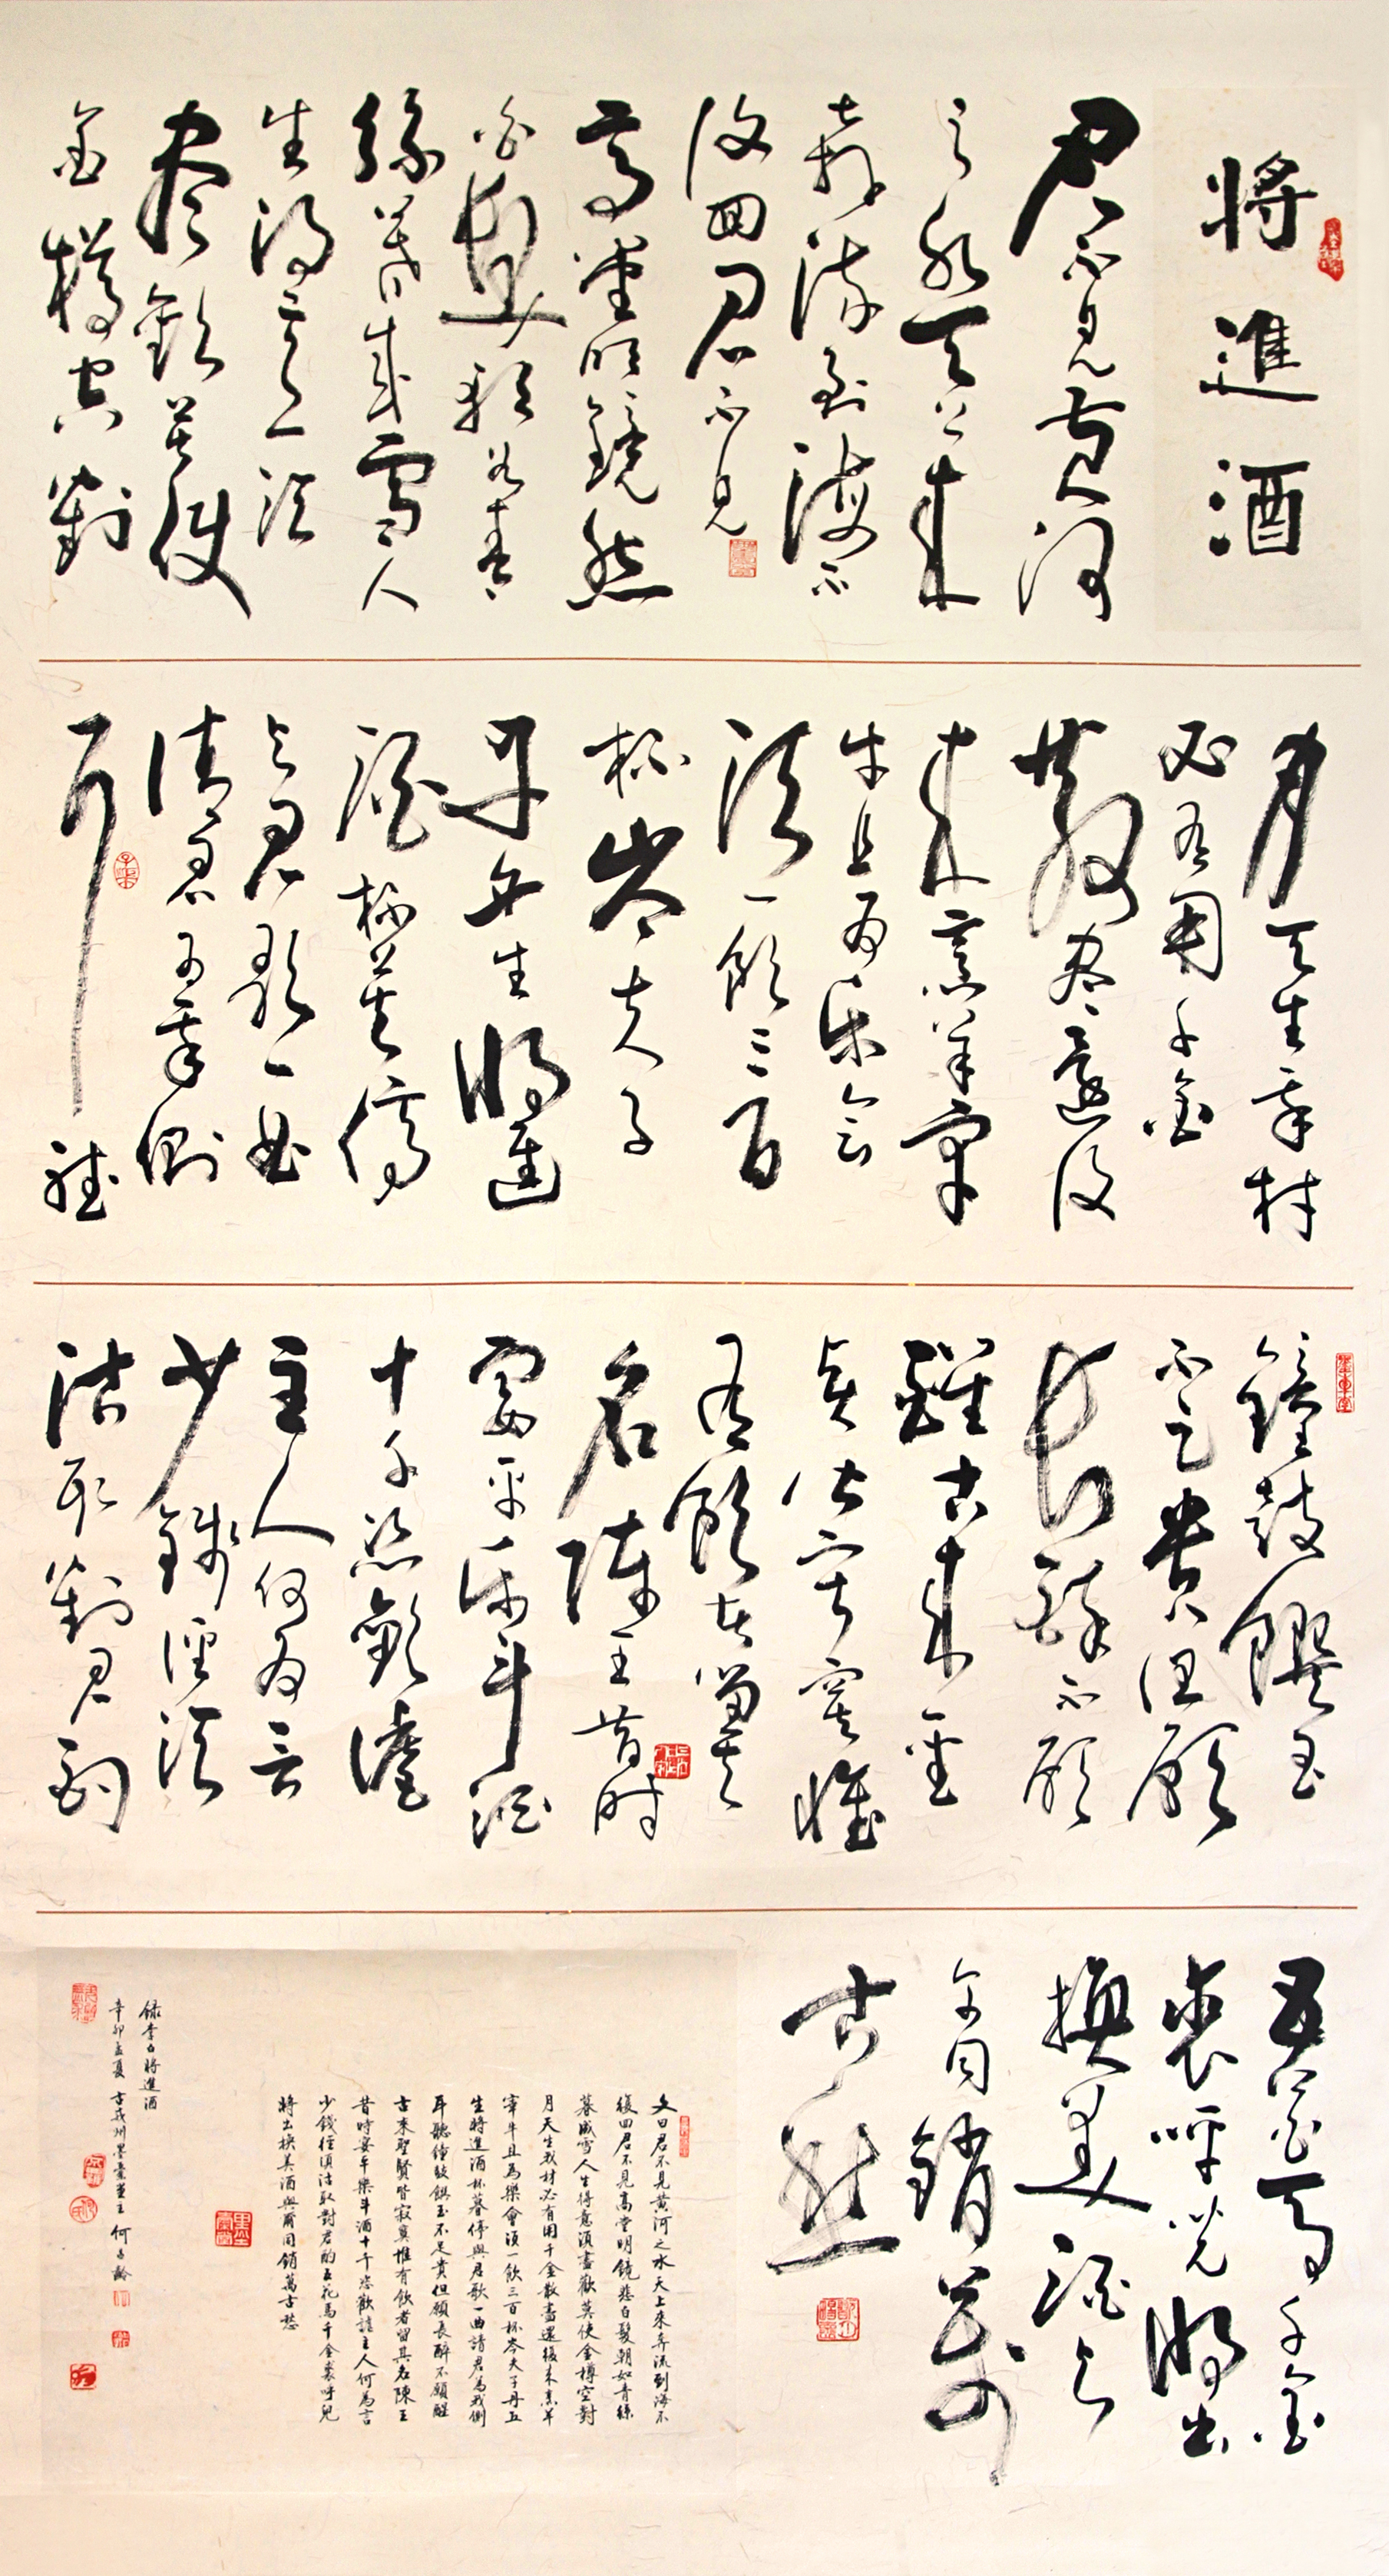 將進酒
君不見黃河
之水天上來
奔流到海不
復回君不見
高堂明鏡悲
白髮朝如青
絲暮成雪人
生得意須
盡歡莫使
金樽空對
月天生我材
必有用千金
散盡還復
來烹羊宰
牛且為樂會
須一飲三百
杯岑夫子
丹丘生將進
酒杯莫停
與君歌一曲
請君為我側
耳聽
鐘鼓饌玉
不足貴但願
長醉不願
醒古來聖
賢皆寂寞惟
有飲者留其
名陳王昔時
宴平樂斗酒
十千恣歡謔
主人何為言
少錢徑須
沽取對君酌
五花馬千金
裘呼兒將出
換美酒與
爾同銷萬
古愁
文曰君不見黃河之水天上來奔流到海不
復回君不見高堂明鏡悲白髮朝如青絲
暮成雪人生得意須盡歡莫使金樽空對
月天生我材必有用千金散盡還復來烹羊
宰牛且為樂會須一飲三百杯岑夫子丹丘
生將進酒杯莫停與君歌一曲請君為我側
耳聽鐘鼓饌玉不足貴但願長醉不願醒
古來聖賢皆寂寞惟有飲者留其名陳王
昔時宴平樂斗酒十千恣歡謔主人何為言
少錢徑須沽取對君酌五花馬千金裘呼兒
將出換美酒與爾同銷萬古愁
錄李白將進酒
辛卯孟夏古義州墨堂主何